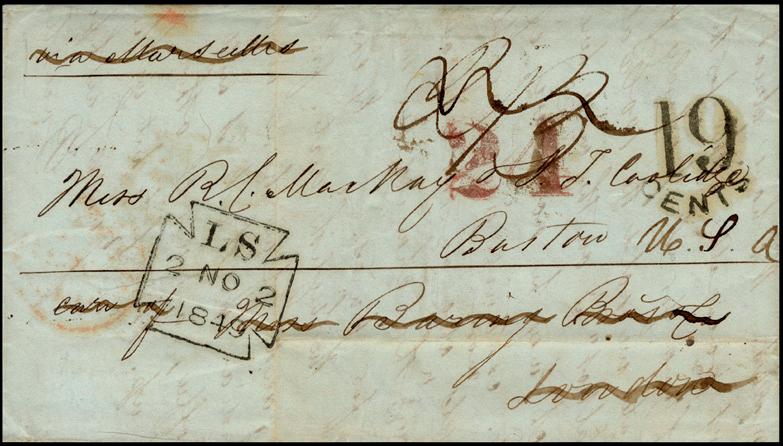 via Marseilles
21
19
CENTS
Miss R. C. MacKay & J. T. Coolidge
Boston U. S. A
LS
2 NO 2
1849
care of Mess Baring Bros &
London